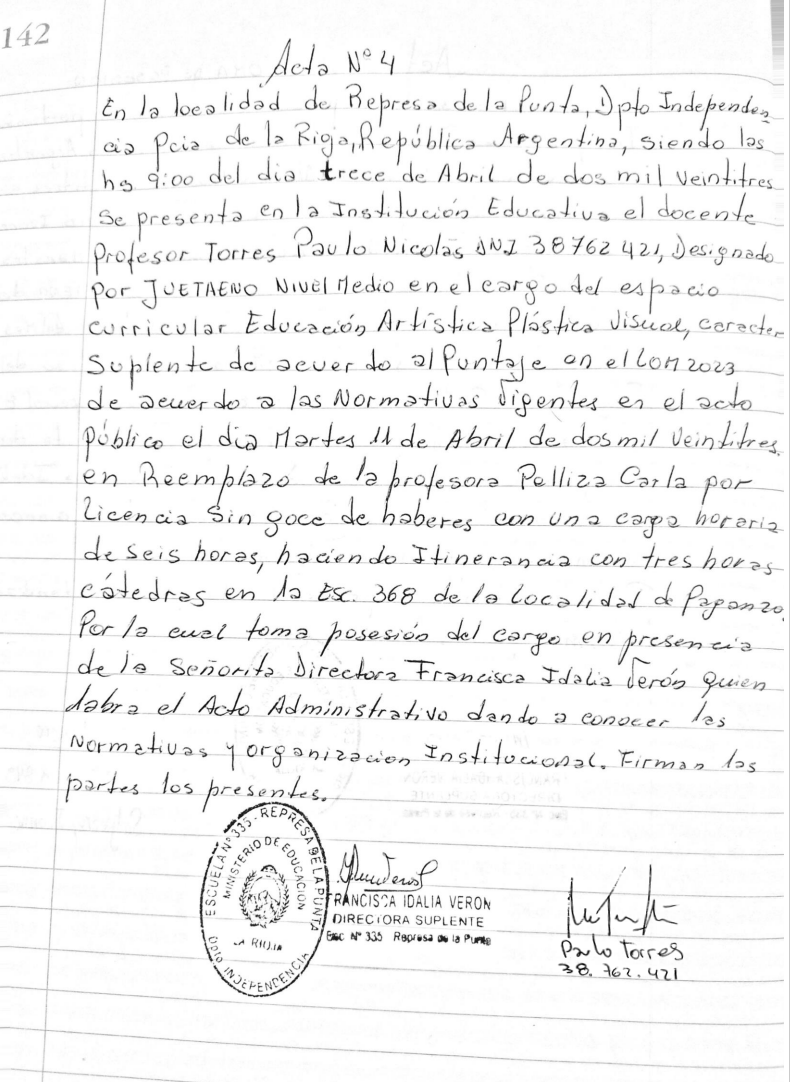 142
Acta N° 4
En la localidad de Represa de la Punta, Dpto Independen
cia Pcia de la Rioja, República Argentina, siendo las
hs 9:00 del dia trece de Abril de dos mil veintitres
se presenta en la Institución Educativa el docente
Profesor Torres Paulo Nicolás DNI 38762421, Designado
Por JUETAENO Nivel Medio en el cargo del espacio
curricular Educación Artística Plástica Visual, caracter
Suplente de acuerdo al Puntaje en el LOM 2023
de acuerdo a las Normativas Vigentes en el acto
público el dia Martes 11 de Abril de dos mil Veintitres.
en Reemplazo de la profesora Pelliza Carla por
Licencia Sin goce de haberes con una carga horaria
de seis horas, haciendo Itinerancia con tres horas
cátedras en la Esc. 368 de la localidad de Paganzo.
Por la cual toma posesión del cargo en presencia
de la Señorita Directora Francisca Idalia Verón quien
labra el Acto Administrativo dando a conocer las
Normativas y organizacion Institucional. Firman las
partes los presentes.
ESCUELA N° 335 - REPRESA DE LA PUNTA
MINISTERIO DE EDUCACION
LA RIOJA
Dpto INDEPENDENCIA
FRANCISCA IDALIA VERON
DIRECTORA SUPLENTE
Esc N° 335 Represa de la Punta
Paulo Torres
38.762.421